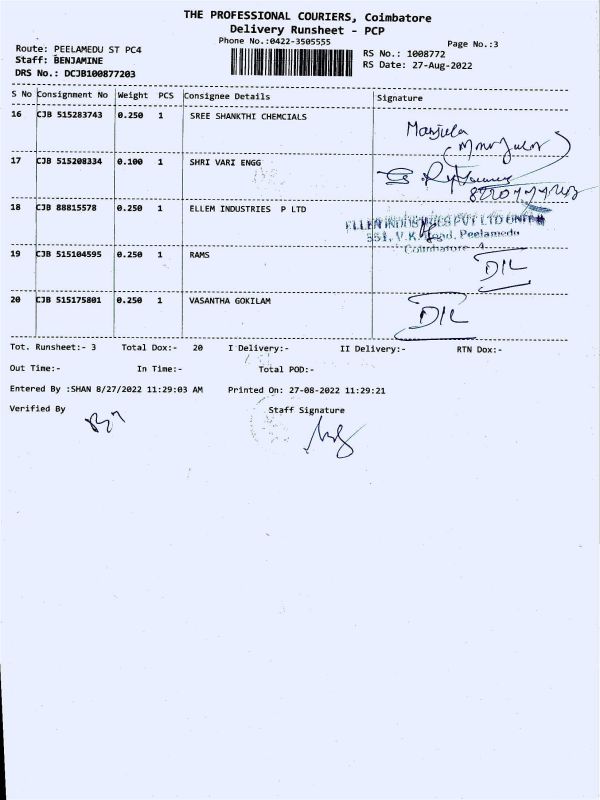 THE PROFESSIONAL COURIERS, Coimbatore
Delivery Runsheet - PCP
Phone No.:0422-3505555
Page No.:3
Route: PEELAMEDU ST PC4
Staff: BENJAMINE
DRS No.: DCJB100877203
RS No.: 1008772
RS Date: 27-Aug-2022
S No Consignment No Weight PCS Consignee Details Signature
16 CJB 515283743 0.250 1 SREE SHANKTHI CHEMCIALS
Manjula
17 CJB 515208334 0.100 1 SHRI VARI ENGG
18 CJB 88815578 0.250 1 ELLEM INDUSTRIES P LTD
ELLEN INDUSTRIES PVT LTD UNIT
551, V.K. Road, Peelamedu
Coimbatore - 4.
19 CJB 515104595 0.250 1 RAMS
D/L
20 CJB 515175801 0.250 1 VASANTHA GOKILAM
D/L
Tot. Runsheet:- 3 Total Dox:- 20 I Delivery:- II Delivery:- RTN Dox:-
Out Time:- In Time:- Total POD:-
Entered By :SHAN 8/27/2022 11:29:03 AM Printed On: 27-08-2022 11:29:21
Verified By Staff Signature